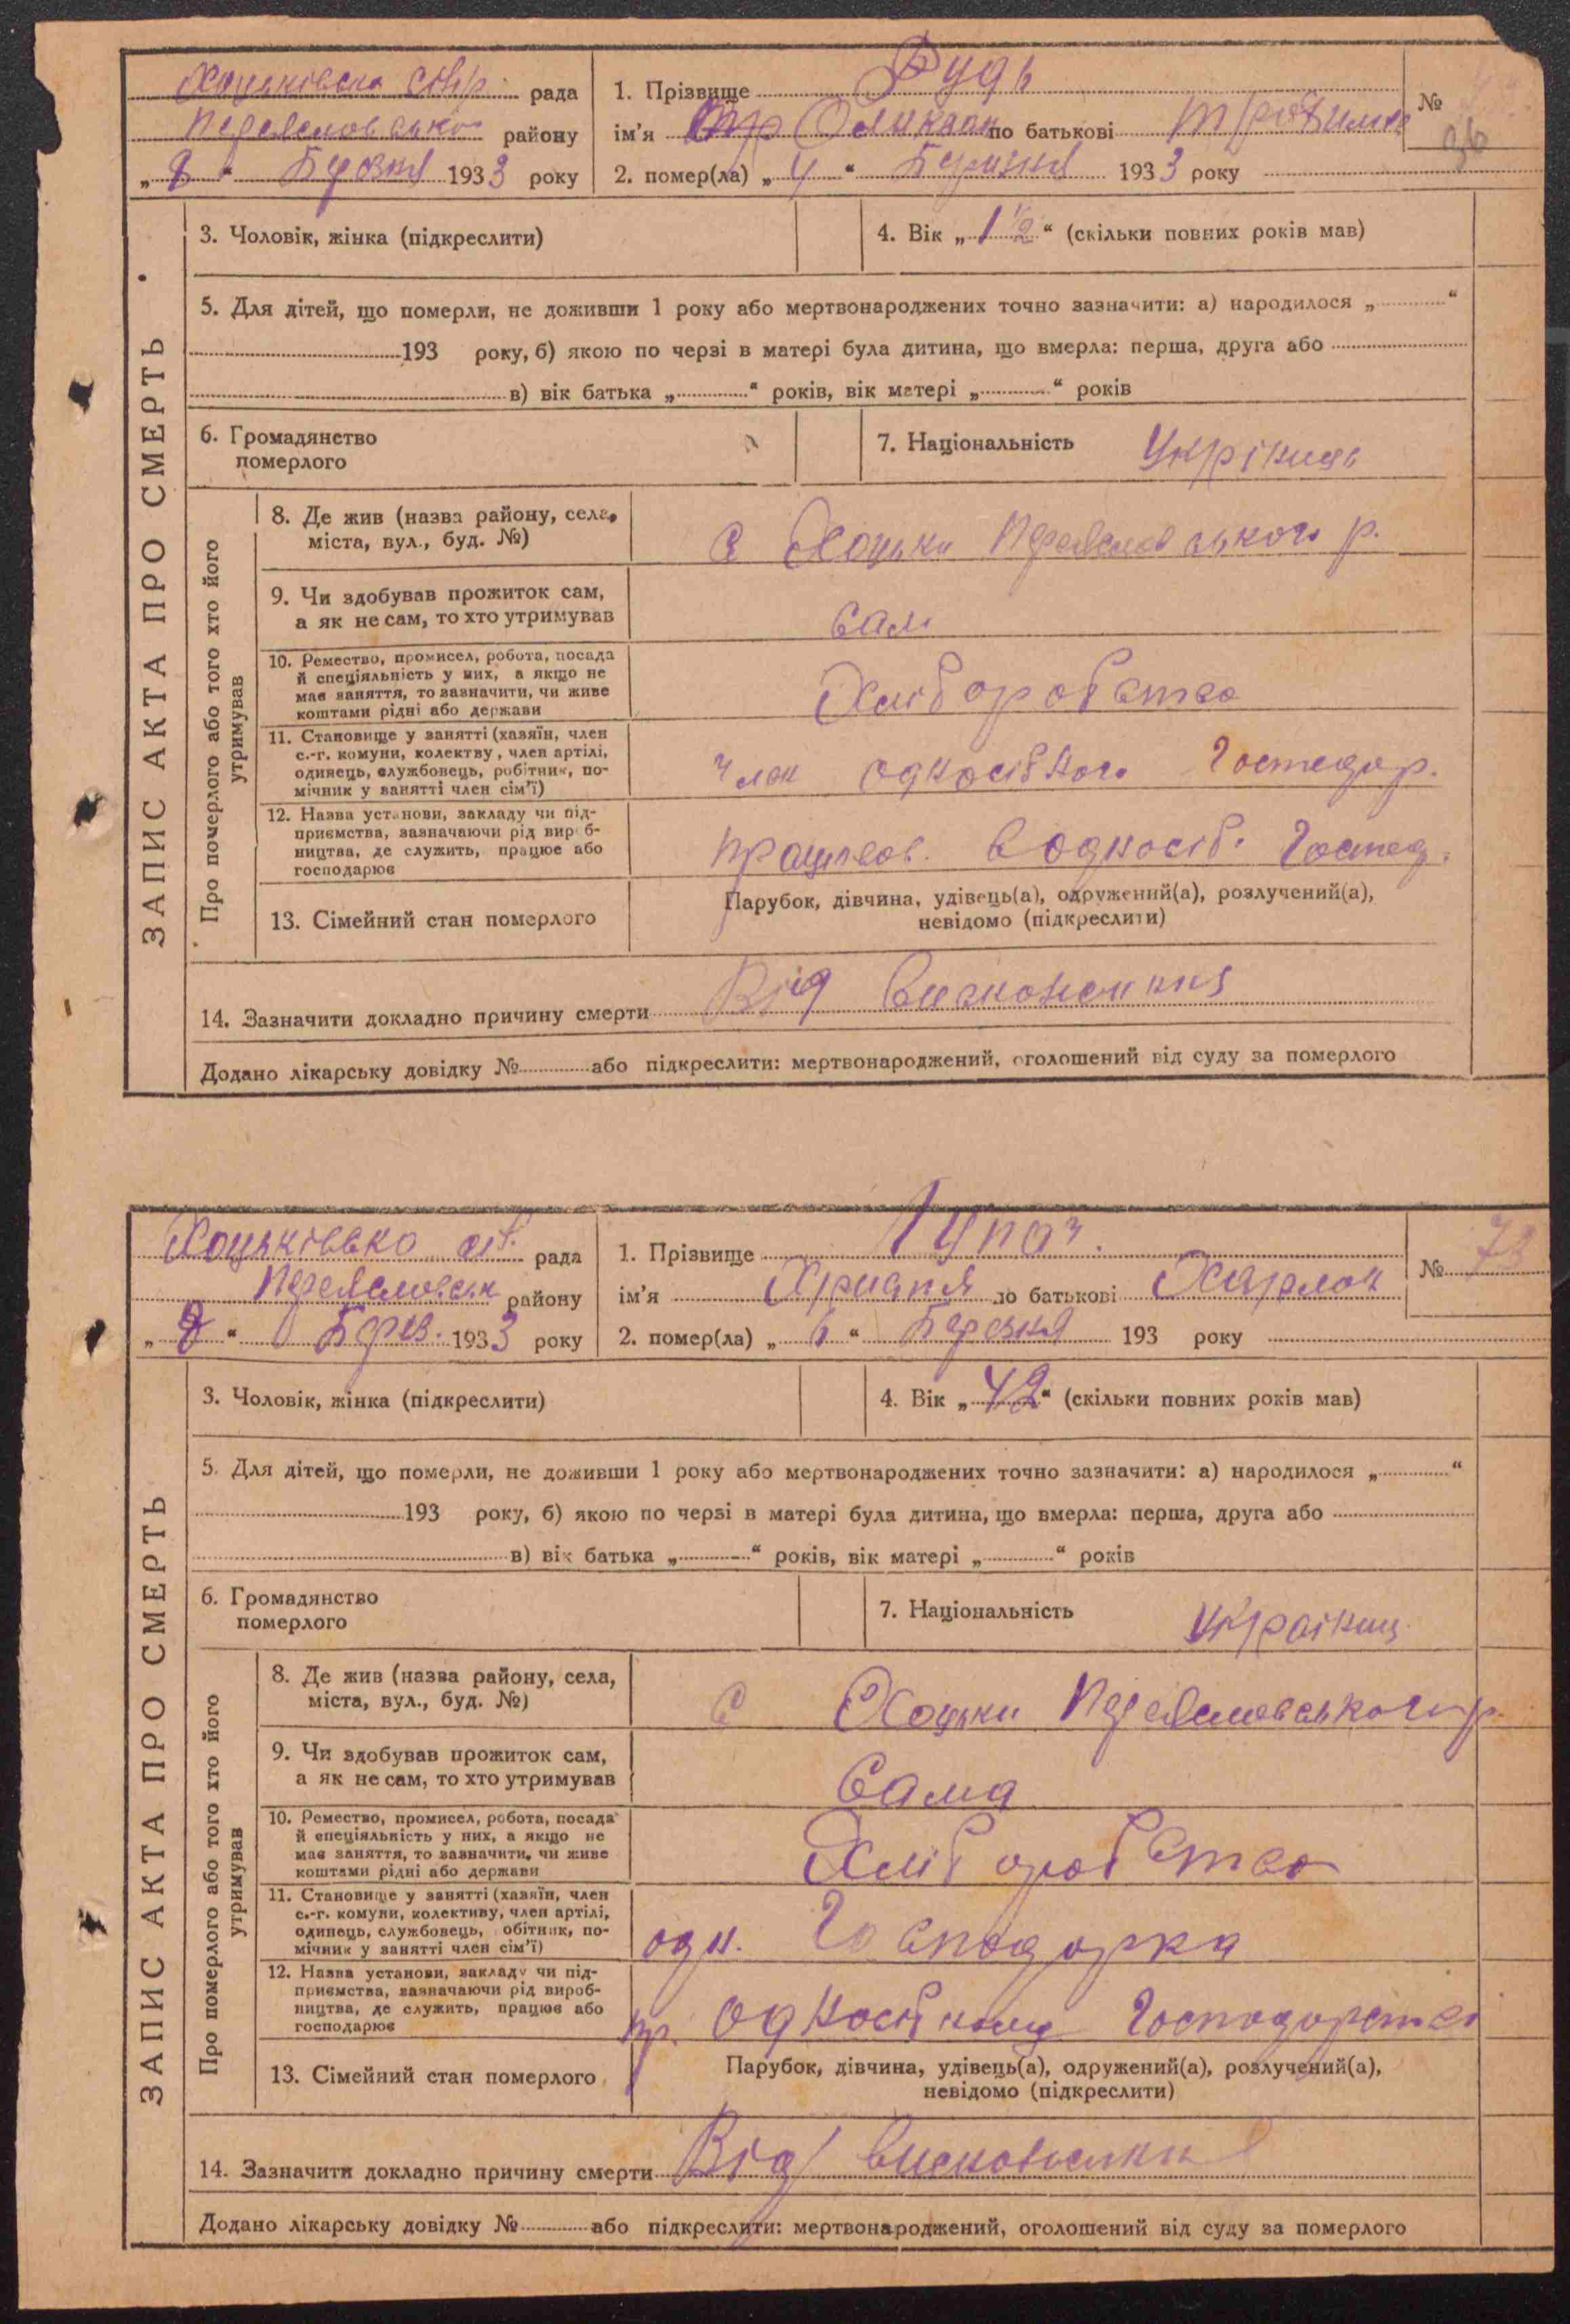 ЗАПИС АКТА ПРО СМЕРТЬ
Хоцьківська рада
Переяславсько району
„ 8 “ Березня 1933 року
1. Прізвище Рудь
ім'я по батькові
2. помер(ла) „ 4 “ Березня 1933 року
№
36
3. Чоловік, жінка (підкреслити)
4. Вік „ 1 1/2 “ (скільки повних років мав)
5. Для дітей, що померли, не доживши 1 року або мертвонароджених точно зазначити: а) народилося „ “
193 року, б) якою по черзі в матері була дитина, що вмерла: перша, друга або
в) вік батька „ “ років, вік матері „ “ років
6. Громадянство
померлого
7. Національність Укрінець
Про померлого або того хто його
утримував
8. Де жив (назва району, села,
міста, вул., буд. №)
с Хоцьки Переяславського р.
9. Чи здобував прожиток сам,
а як не сам, то хто утримував
сам
10. Ремество, промисел, робота, посада
й спеціяльність у них, а якщо не
має заняття, то зазначити, чи живе
коштами рідні або держави
Хліборобство
11. Становище у занятті (хазяїн, член
с.-г. комуни, колектву, член артілі,
одинець, службовець, робітник, по-
мічник у занятті член сім'ї)
член односібного Господар.
12. Назва установи, закладу чи під-
приємства, зазначаючи рід вироб-
ництва, де служить, працює або
господарює
працював. в односіб. Господ.
13. Сімейний стан померлого
Парубок, дівчина, удівець(а), одружений(а), розлучений(а),
невідомо (підкреслити)
14. Зазначити докладно причину смерти Від виснаження
Додано лікарську довідку № або підкреслити: мертвонароджений, оголошений від суду за померлого
ЗАПИС АКТА ПРО СМЕРТЬ
Хоцьківсько рада
Переяславськ району
„ 8 “ Берез. 1933 року
1. Прізвище Лупач.
ім'я по батькові
2. помер(ла) „ 6 “ Березня 193 року
№ 73
3. Чоловік, жінка (підкреслити)
4. Вік „ 42 “ (скільки повних років мав)
5. Для дітей, що померли, не доживши 1 року або мертвонароджених точно зазначити: а) народилося „ “
193 року, б) якою по черзі в матері була дитина, що вмерла: перша, друга або
в) вік батька „ “ років, вік матері „ “ років
6. Громадянство
померлого
7. Національність Україниц
Про померлого або того хто його
утримував
8. Де жив (назва району, села,
міста, вул., буд. №)
с Хоцьки Переяславського р.
9. Чи здобував прожиток сам,
а як не сам, то хто утримував
Сама
10. Ремество, промисел, робота, посада
й спеціяльність у них, а якщо не
має заняття, то зазначити, чи живе
коштами рідні або держави
Хліборобство
11. Становище у занятті (хазяїн, член
с.-г. комуни, колективу, член артілі,
одинець, службовець, обітник, по-
мічник у занятті член сім'ї)
одн. Господарка
12. Назва установи, закладу чи під-
приємства, зазначаючи рід вироб-
ництва, де служить, працює або
господарює
пр. односібному Господарстві
13. Сімейний стан померлого
Парубок, дівчина, удівець(а), одружений(а), розлучений(а),
невідомо (підкреслити)
14. Зазначити докладно причину смерти Від виснаження
Додано лікарську довідку № або підкреслити: мертвонароджений, оголошений від суду за померлого